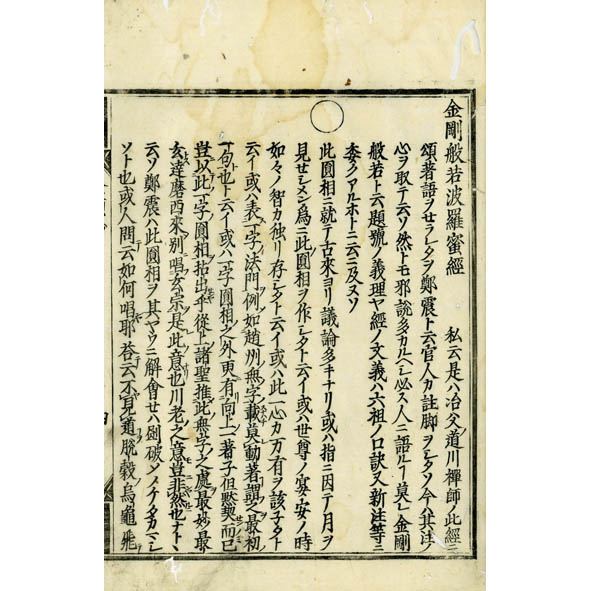 金剛般若波羅蜜經　私云是ハ冶父道川禪師ノ此經ニ
頌著語ヲセラレタヲ鄭震ト云官人カ註脚ヲシタソ今ハ其注ノ
心ヲ取テ云ソ然トモ邪説多カルヘシ必ス人ニ語ルヿ莫レ金剛
般若ト云題號ノ義理ヤ經ノ文義ハ六祖ノ口訣又新注等ニ
委クアルホトニ云ニ及ヌソ
○
此圓相ニ就テ古來ヨリ議論多キナリ或ハ指ニ因テ月ヲ
見セシメン爲ニ此圓相ヲ作シタト云イ或ハ世尊ノ宴安ノ時
如々ノ智カ独リ存シタト云イ或ハ此一心カ万有ヲ該子タト
云イ或ハ表一字法門例如趙州無字載莫動著謂之最初
一句也ト云イ或ハ一字圓相之外更有向上一著子但黙契而已
豈以此一字圓相拈出乎從上諸聖推此無字之處最妙最
玄達磨西來別唱玄宗是此意也川老之意豈非然也ナト丶
云ソ鄭震ハ此圓相ヲ其ヤウニ解會セハ劈破シメイタカマシ
ソト也或人問云如何喝耶荅云不見道脱殻烏龜飛